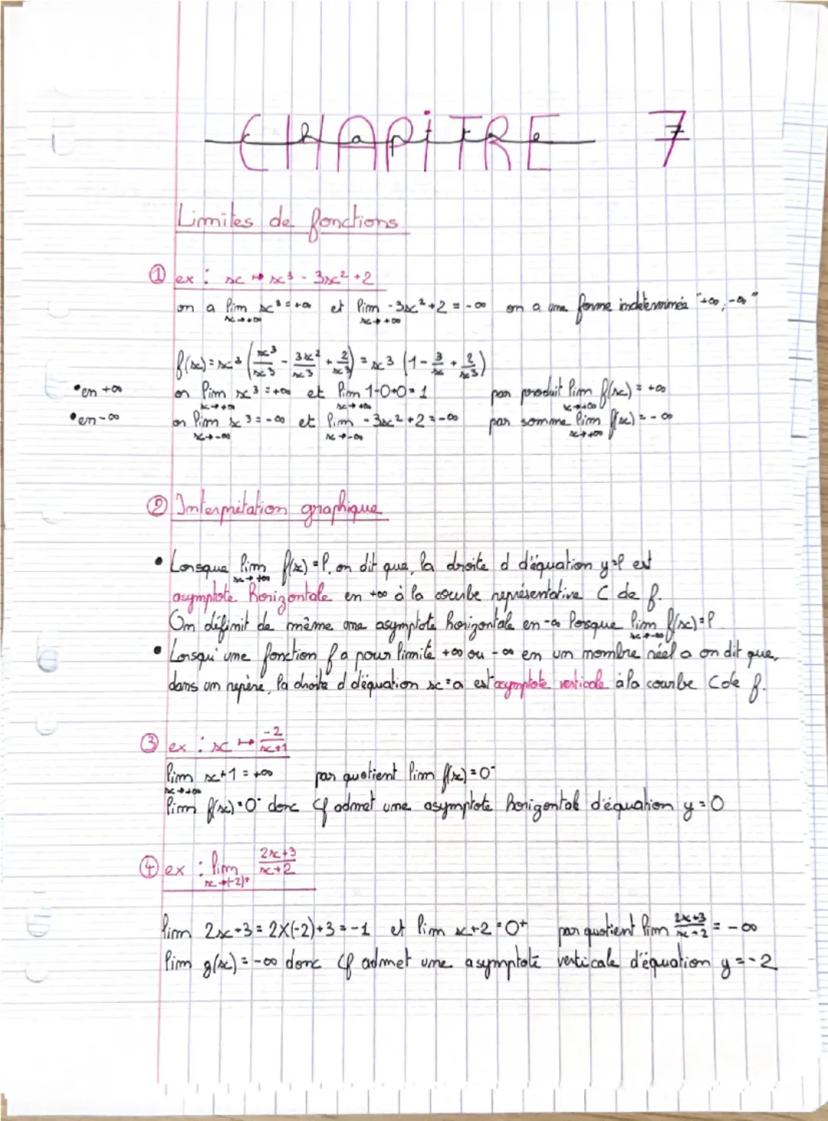 CHAPITRE 7
Limites de fonctions
① ex : x ↦ x³ - 3x² + 2
on a lim x³ = +∞ et lim -3x² + 2 = -∞ on a une forme indéterminée "+∞, -∞"
x→+∞ x→+∞
f(x) = x³ (x³/x³ - 3x²/x³ + 2/x³) = x³ (1 - 3/x + 2/x³)
• en +∞ or lim x³ = +∞ et lim 1-0+0 = 1 par produit lim f(x) = +∞
x→+∞ x→+∞ x→+∞
• en -∞ or lim x³ = -∞ et lim -3x² + 2 = -∞ par somme lim f(x) = -∞
x→-∞ x→-∞ x→+∞
② Interprétation graphique
• Lorsque lim f(x) = l, on dit que, la droite d d'équation y=l est
x→+∞
asymptote horizontale en +∞ à la courbe représentative C de f.
On définit de même une asymptote horizontale en -∞ lorsque lim f(x) = l
x→-∞
• Lorsqu'une fonction f a pour limite +∞ ou -∞ en un nombre réel a on dit que,
dans un repère, la droite d d'équation x=a est asymptote verticale à la courbe C de f.
③ ex : x ↦ -2/x+1
lim x+1 = +∞ par quotient lim f(x) = 0⁻
x→+∞
lim f(x) = 0⁻ donc Cf admet une asymptote horizontal d'équation y = 0
④ ex : lim 2x+3/x+2
x→(-2)⁺
lim 2x+3 = 2×(-2)+3 = -1 et lim x+2 = 0⁺ par quotient lim 2x+3/x+2 = -∞
lim g(x) = -∞ donc Cf admet une asymptote verticale d'équation y = -2